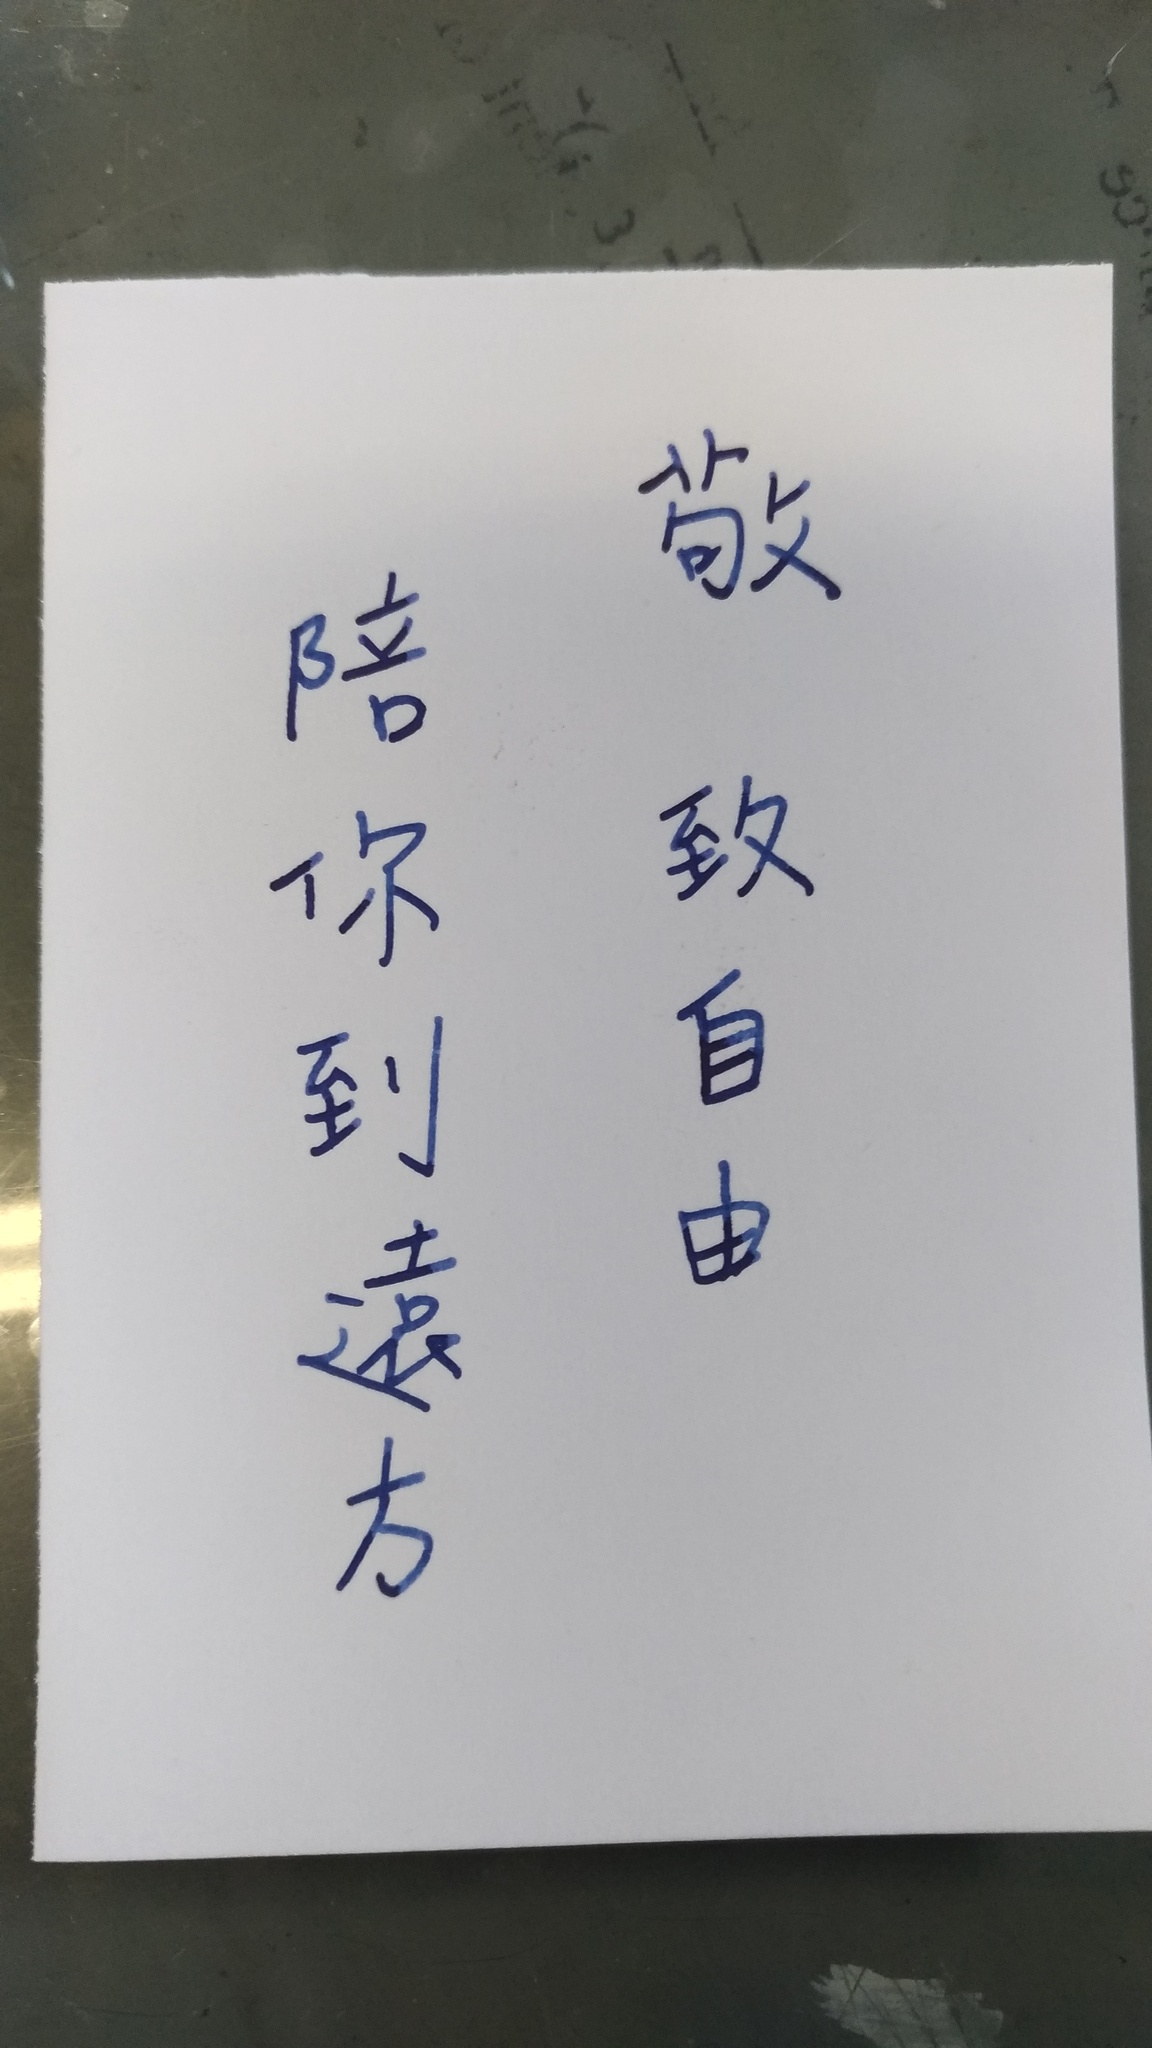 敬致自由
陪你到遠方